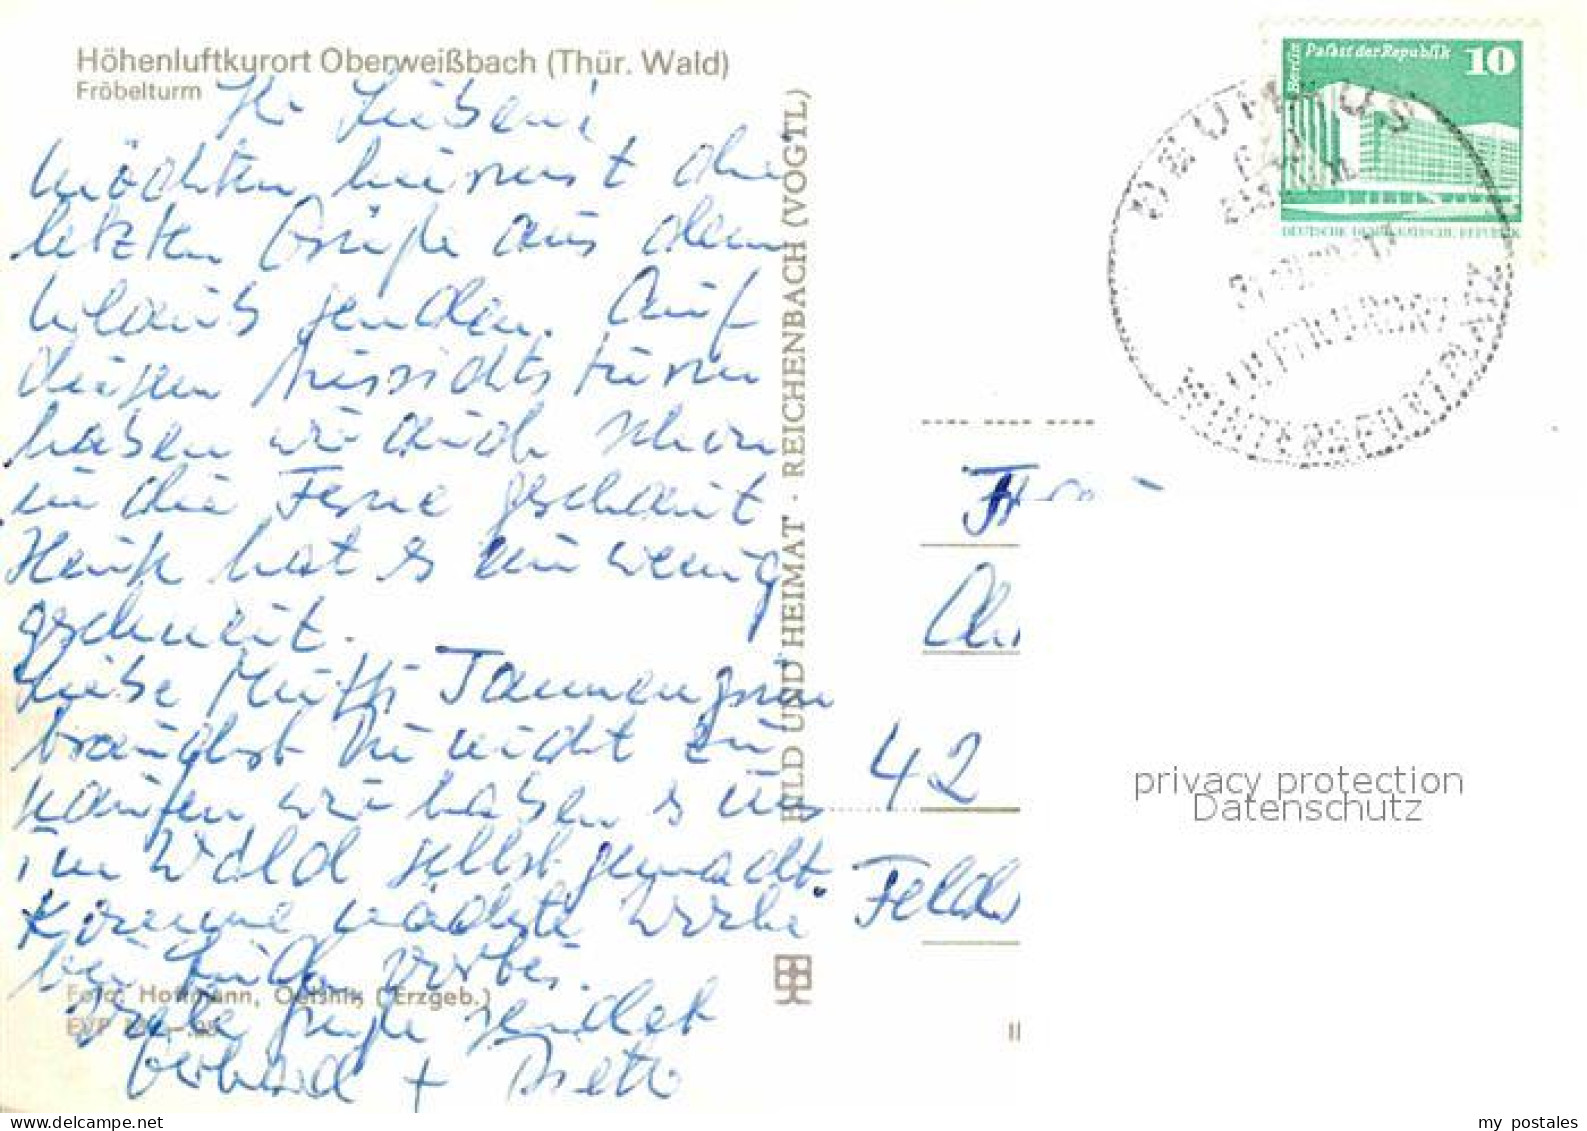 Höhenluftkurort Oberweißbach (Thür. Wald)
Fröbelturm
Ihr Lieben!
Möchten hiermit die
letzten Grüße aus dem
Urlaub senden. Auf
diesen Aussichtsturm
haben wir auch schon
in die Ferne geschaut
Heute hat es ein wenig
geschneit.
Liebe Mutti Tannengrün
brauchst Du nicht zu
kaufen wir haben es uns
im Wald selbst gemacht.
Komme nächste Woche
bei Euch vorbei.
Foto: Hoffmann, Oelsnitz (Erzgeb.)
Liebe Grüße sendet
EVP
Gerhard +
BILD UND HEIMAT · REICHENBACH (VOGTL)
Berlin Palast der Republik 10
DEUTSCHE DEMOKRATISCHE REPUBLIK
LUFTKURORT
WINTERSPORTPLATZ
42
privacy protection
Datenschutz
my postales